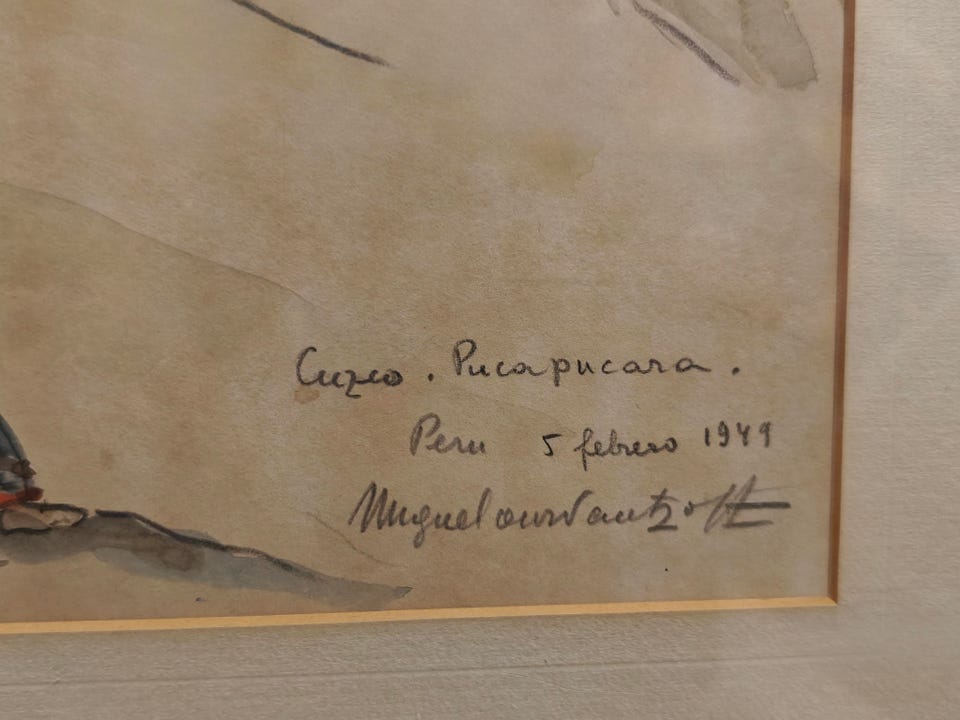 Cuzco. Pucapucara.
Peru 5 febrero 1949
Miguel Ourvantzoff